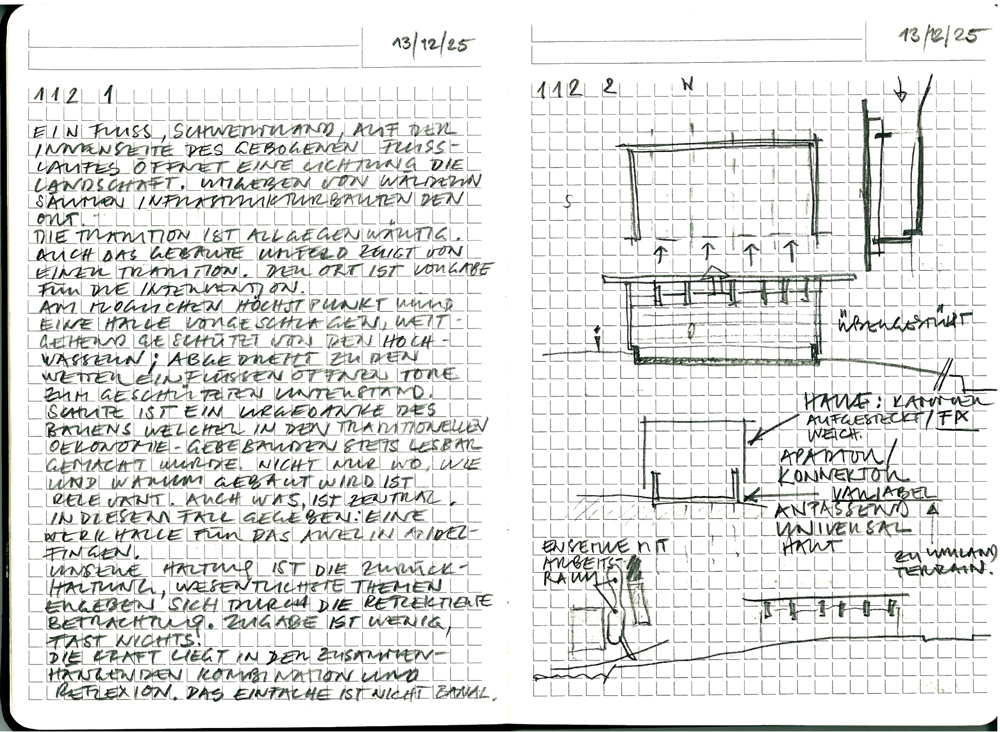 13/12/25
112 1
EIN FLUSS, SCHWEMMLAND, AUF DER
INNENSEITE DES GEBOGENEN FLUSS-
LAUFES ÖFFNET EINE LICHTUNG DIE
LANDSCHAFT. UMGEBEN VON WÄLDERN
SÄUMEN INFRASTRUKTURBAUTEN DEN
ORT.
DIE TRADITION IST ALLGEGENWÄRTIG.
AUCH DAS GEBAUTE UMFELD ZEUGT VON
EINER TRADITION. DER ORT IST VORGABE
FÜR DIE INTERVENTION.
AM MÖGLICHEN HÖCHSTPUNKT WIRD
EINE HALLE VORGESCHLAGEN, WEIT-
GEHEND GESCHÜTZT VON DEN HOCH-
WASSERN; ABGEDREHT ZU DEN
WETTEREINFLÜSSEN ÖFFNEN TORE
ZUM GESCHÜTZTEN UNTERSTAND.
SCHUTZ IST EIN URGEDANKE DES
BAUENS WELCHER IN DEN TRADITIONELLEN
OEKONOMIE-GEBEBAUDEN STETS LESBAR
GEMACHT WURDE. NICHT NUR WO, WIE
UND WARUM GEBAUT WIRD IST
RELEVANT. AUCH WAS, IST ZENTRAL.
IN DIESEM FALL GEGEBEN: EINE
WERKHALLE FÜR DAS AWEL IN ANDEL-
FINGEN.
UNSERE HALTUNG IST DIE ZURÜCK-
HALTUNG, WESENTLICHSTE THEMEN
ERGEBEN SICH DURCH DIE REFLEKTIERTE
BETRACHTUNG. ZUGABE IST WENIG,
FAST NICHTS!
DIE KRAFT LIEGT IN DER ZUSAMMEN-
HÄNGENDEN KOMBINATION UND
REFLEXION. DAS EINFACHE IST NICHT BANAL.
13/12/25
112 2
N
S
ÜBERGESTÜRT
HALLE: KAMMER
AUFGESTECKT/FIX
WEICH.
APARATUR/
KONNEKTOR
VARIABEL
ANPASSEND
UNIVERSAL
HAUT
ZU UMLAND
TERRAIN.
ENSEMLE MIT
ARBEITS-
RAUM